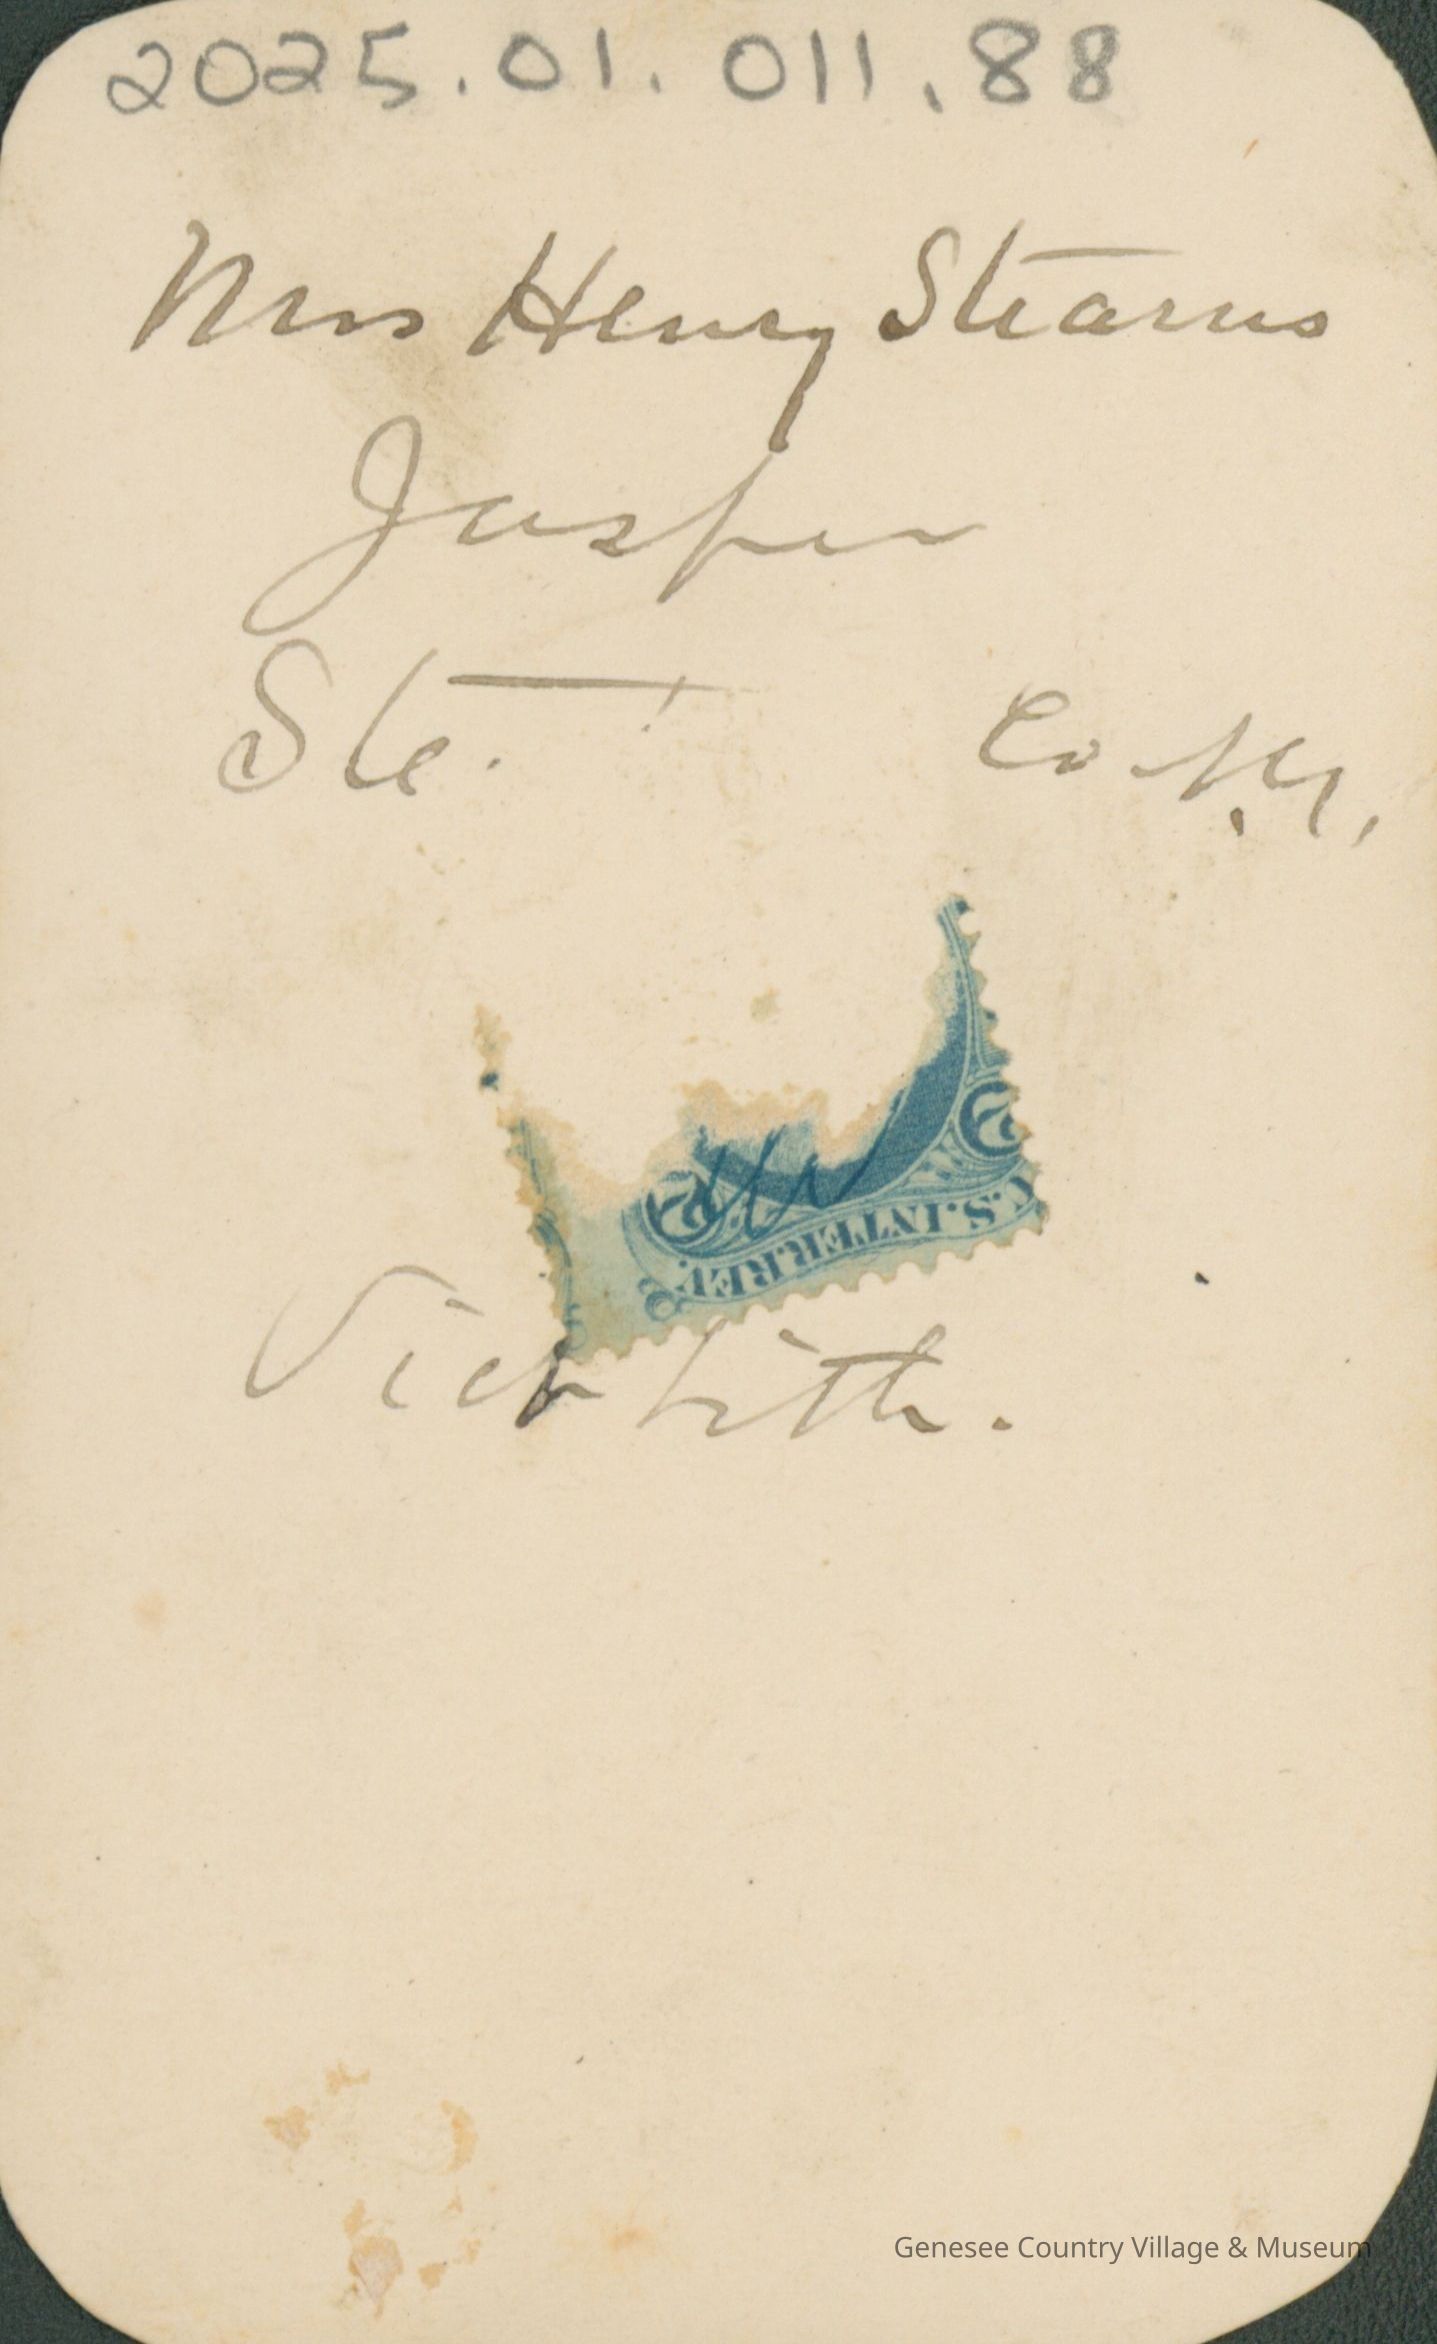 2025.01.011.88
Mrs Henry Stearns
Jasper
Ste. Co N.Y.
2 2
U.S. INTER. REV.
Genesee Country Village & Museum